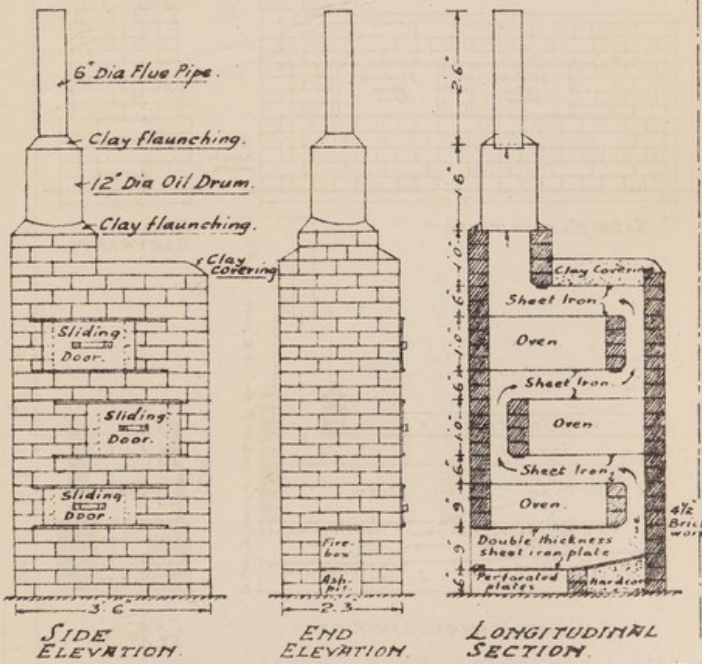 6" Dia Flue Pipe.
Clay flaunching.
12" Dia Oil Drum.
Clay flaunching.
Clay
covering
Sliding
Door.
Sliding
Door.
Sliding
Door.
3'6"
SIDE
ELEVATION.
Fire-
box
Ash-
pit
2'3"
END
ELEVATION.
2'6"
1'6"
1'0"
6"
1'0"
6"
1'0"
6"
9"
9"
6"
Clay Covering
Sheet Iron
Oven.
Sheet Iron.
Oven.
Sheet Iron.
Oven
Double thickness
sheet iron plate
Perforated
plates
Hardcore
4½"
LONGITUDINAL
SECTION.